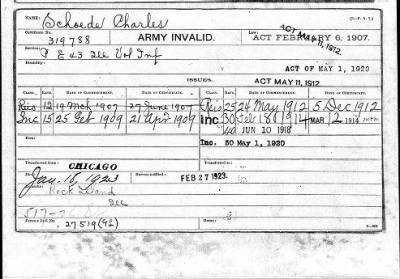 NAME: Schoede Charles
Certificate No. 319788 ARMY INVALID. ACT MAY 11, 1912. ACT FEBRUARY 6, 1907.
Service: E 43 Ill Vol Inf
Disability: ACT OF MAY 1, 1920
ISSUES. ACT MAY 11, 1912
CLASS. RATE. DATE OF COMMENCEMENT. DATE OF CERTIFICATE. CLASS. RATE. DATE OF COMMENCEMENT. DATE OF CERTIFICATE.
Reis 12 19 Mch 1907 27 June 1907 Reis 25 24 May 1912 5 Dec 1912
Inc 15 25 1909 21 1909 Inc. 30 Feb 18 1914 MAR 2 1914
JUN 10 1918
Inc. 50 May 1, 1920
Transferred from CHICAGO
Jan. 18, 1923 FEB 27 1923.
Rock Island
Ill
Home:
27519